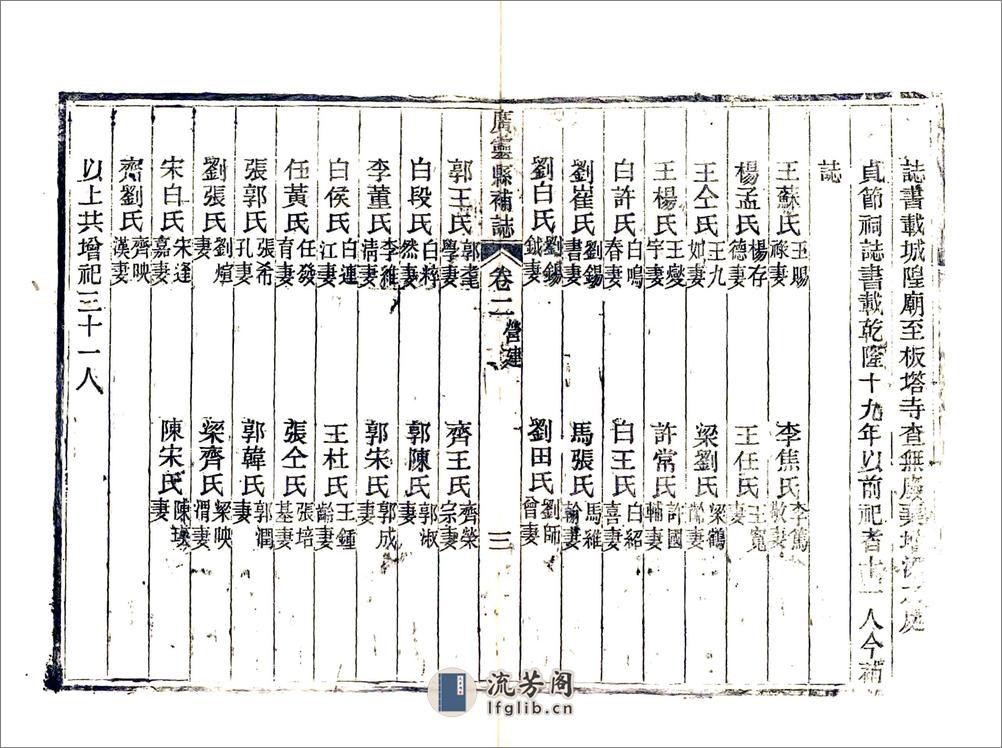 誌書載城隍廟至板塔寺查無廢 增
貞節祠誌書載乾隆十九年以前祀者十一人今補
誌
王蘇氏 王賜祿妻 李焦氏 李篤敬妻
楊孟氏 楊存德妻 王任氏 王寬妻
王仝氏 王九如妻 梁劉氏 梁鶴齡妻
王楊氏 王燮宇妻 許常氏 許國輔妻
白許氏 白鳴春妻 白王氏 白紹喜妻
劉崔氏 劉錫書妻 馬張氏 馬維翰妻
劉白氏 劉錫鉞妻 劉田氏 劉師曾妻
廣靈縣補誌 卷二 營建 三
郭王氏 郭耄學妻 齊王氏 齊榮宗妻
白段氏 白粹然妻 郭陳氏 郭淑妻
李董氏 李維清妻 郭宋氏 郭成妻
白侯氏 白連江妻 王杜氏 王鍾齡妻
任黃氏 任發育妻 張仝氏 張培基妻
張郭氏 張希孔妻 郭韓氏 郭潤妻
劉張氏 劉煊妻 梁齊氏 梁映渭妻
宋白氏 宋逢嘉妻 陳宋氏 陳 妻
齊劉氏 齊映漢妻
以上共增祀三十一人
流芳阁
lfglib.cn